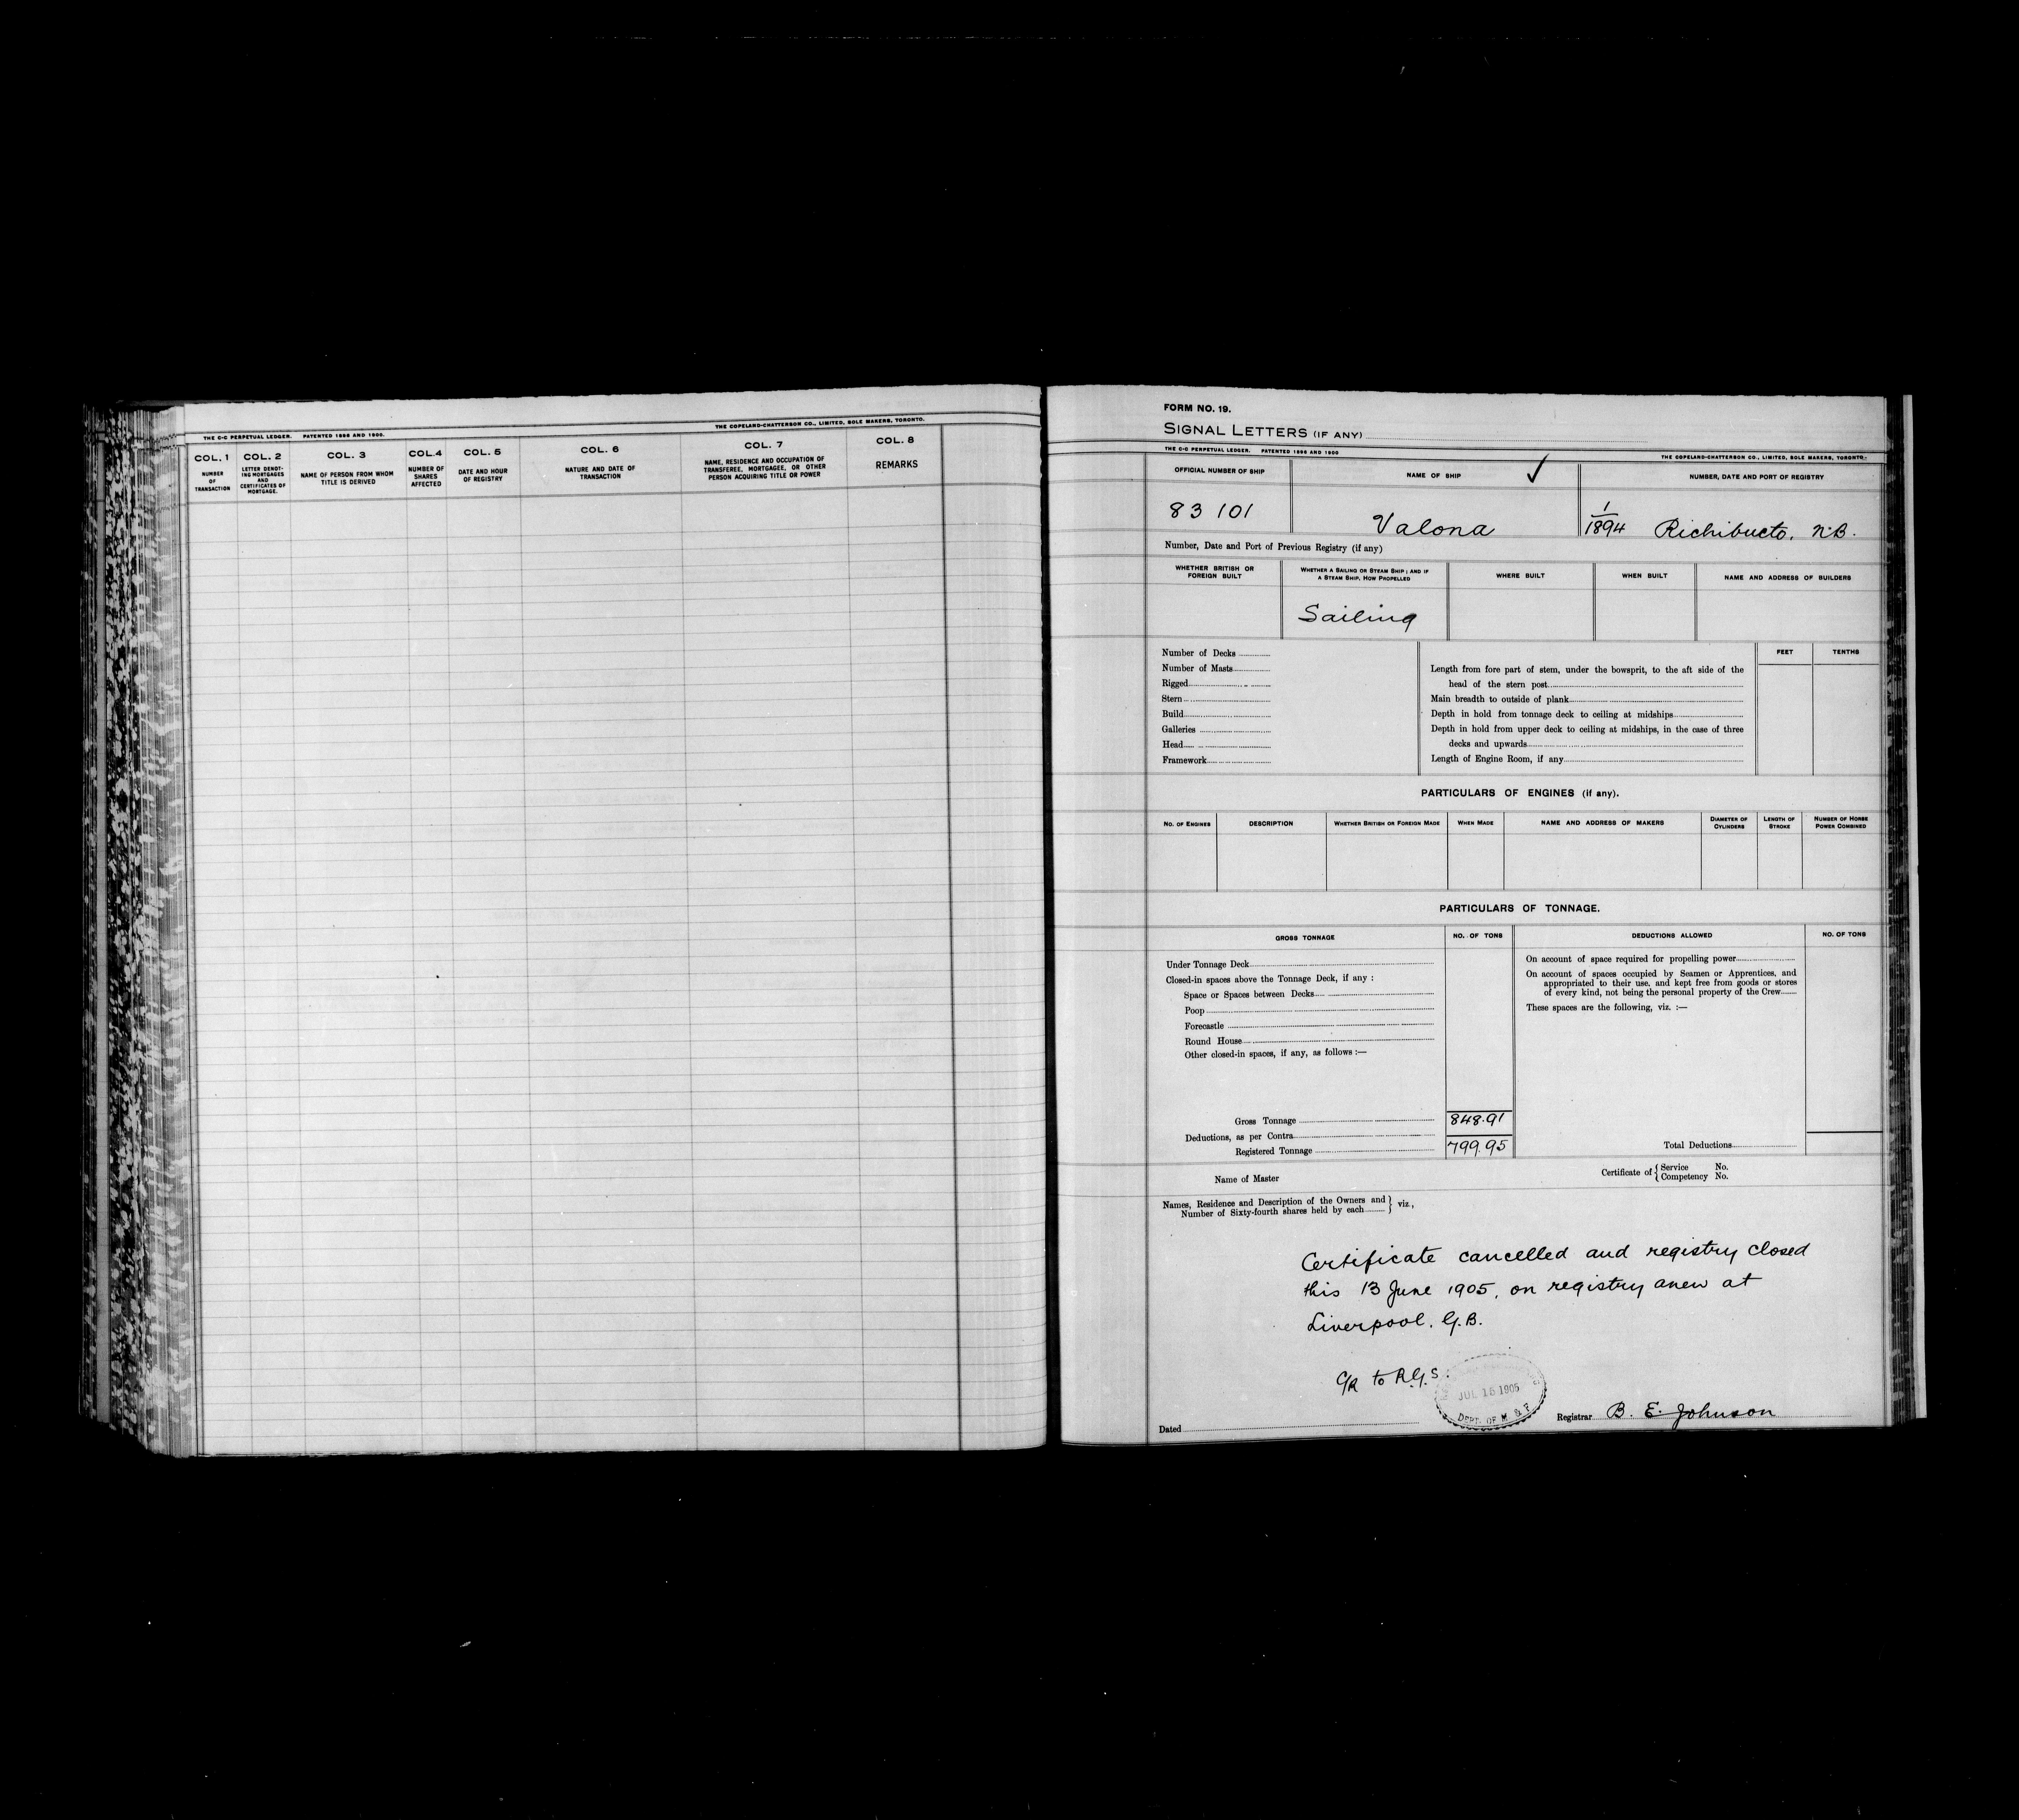 THE C-C PERPETUAL LEDGER. PATENTED 1898 AND 1900. THE COPELAND-CHATTERSON CO., LIMITED, SOLE MAKERS, TORONTO.
COL. 1 COL. 2 COL. 3 COL. 4 COL. 5 COL. 6 COL. 7 COL. 8
NUMBER OF TRANSACTION
LETTER DENOTING MORTGAGES AND CERTIFICATES OF MORTGAGE.
NAME OF PERSON FROM WHOM TITLE IS DERIVED
NUMBER OF SHARES AFFECTED
DATE AND HOUR OF REGISTRY
NATURE AND DATE OF TRANSACTION
NAME, RESIDENCE AND OCCUPATION OF TRANSFEREE, MORTGAGEE, OR OTHER PERSON ACQUIRING TITLE OR POWER
REMARKS
FORM NO. 19.
SIGNAL LETTERS (IF ANY)
THE C-C PERPETUAL LEDGER. PATENTED 1898 AND 1900 THE COPELAND-CHATTERSON CO., LIMITED, SOLE MAKERS, TORONTO.
OFFICIAL NUMBER OF SHIP NAME OF SHIP ✓ NUMBER, DATE AND PORT OF REGISTRY
83 101 Valona 1/1894 Richibucto, N.B.
Number, Date and Port of Previous Registry (if any)
WHETHER BRITISH OR FOREIGN BUILT
WHETHER A SAILING OR STEAM SHIP; AND IF A STEAM SHIP, HOW PROPELLED
WHERE BUILT WHEN BUILT NAME AND ADDRESS OF BUILDERS
Sailing
Number of Decks
Number of Masts
Rigged
Stern
Build
Galleries
Head
Framework
FEET TENTHS
Length from fore part of stem, under the bowsprit, to the aft side of the
head of the stern post
Main breadth to outside of plank
Depth in hold from tonnage deck to ceiling at midships
Depth in hold from upper deck to ceiling at midships, in the case of three
decks and upwards
Length of Engine Room, if any
PARTICULARS OF ENGINES (if any).
NO. OF ENGINES DESCRIPTION WHETHER BRITISH OR FOREIGN MADE WHEN MADE NAME AND ADDRESS OF MAKERS DIAMETER OF CYLINDERS LENGTH OF STROKE NUMBER OF HORSE POWER COMBINED
PARTICULARS OF TONNAGE.
GROSS TONNAGE NO. OF TONS DEDUCTIONS ALLOWED NO. OF TONS
Under Tonnage Deck
Closed-in spaces above the Tonnage Deck, if any :
Space or Spaces between Decks
Poop
Forecastle
Round House
Other closed-in spaces, if any, as follows :—
Gross Tonnage 848.91
Deductions, as per Contra
Registered Tonnage 799.95
On account of space required for propelling power
On account of spaces occupied by Seamen or Apprentices, and
appropriated to their use, and kept free from goods or stores
of every kind, not being the personal property of the Crew
These spaces are the following, viz. :—
Total Deductions
Name of Master Certificate of { Service No.
{ Competency No.
Names, Residence and Description of the Owners and } viz.,
Number of Sixty-fourth shares held by each
Certificate cancelled and registry closed
this 13 June 1905, on registry anew at
Liverpool. G.B.
C/R to R.G.S.
JUL 15 1905
DEPT. OF M & F
Dated Registrar B. E. Johnson